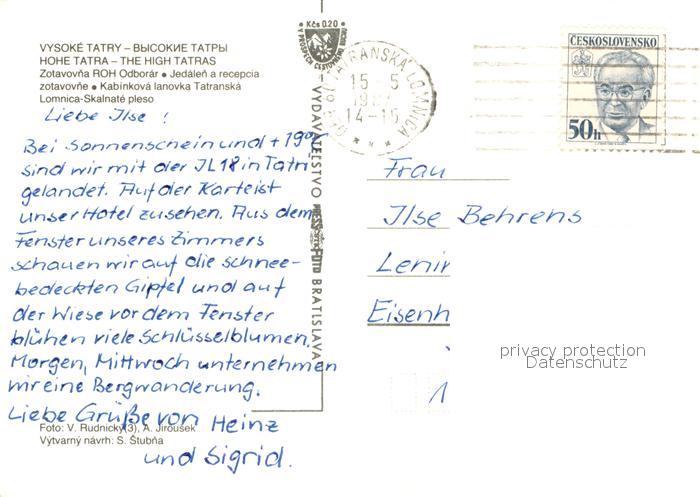 VYSOKÉ TATRY – ВЫСОКИЕ ТАТРЫ
HOHE TATRA – THE HIGH TATRAS
Zotavovňa ROH Odborár • Jedáleň a recepcia
zotavovňe • Kabínková lanovka Tatranská
Lomnica-Skalnaté pleso
Liebe Ilse!
Bei Sonnenschein und +19°
sind wir mit der IL 18 in Tatri
gelandet. Auf der Karte ist
unser Hotel zu sehen. Aus dem
Fenster unseres Zimmers
schauen wir auf die schnee-
bedeckten Gipfel und auf
der Wiese vor dem Fenster
blühen viele Schlüsselblumen.
Morgen, Mittwoch unternehmen
wir eine Bergwanderung.
Liebe Grüße von Heinz
und Sigrid.
Foto: V. Rudnický(3), A. Jiroušek
Výtvarný návrh: S. Štubňa
Kčs 0.20
VYDAVATEĽSTVO PRESSFOTO BRATISLAVA
TATRANSKÁ LOMNICA
15-5
14-15
ČESKOSLOVENSKO
50h
Frau
Ilse Behrens
Lenin
Eisenh
1
privacy protection
Datenschutz